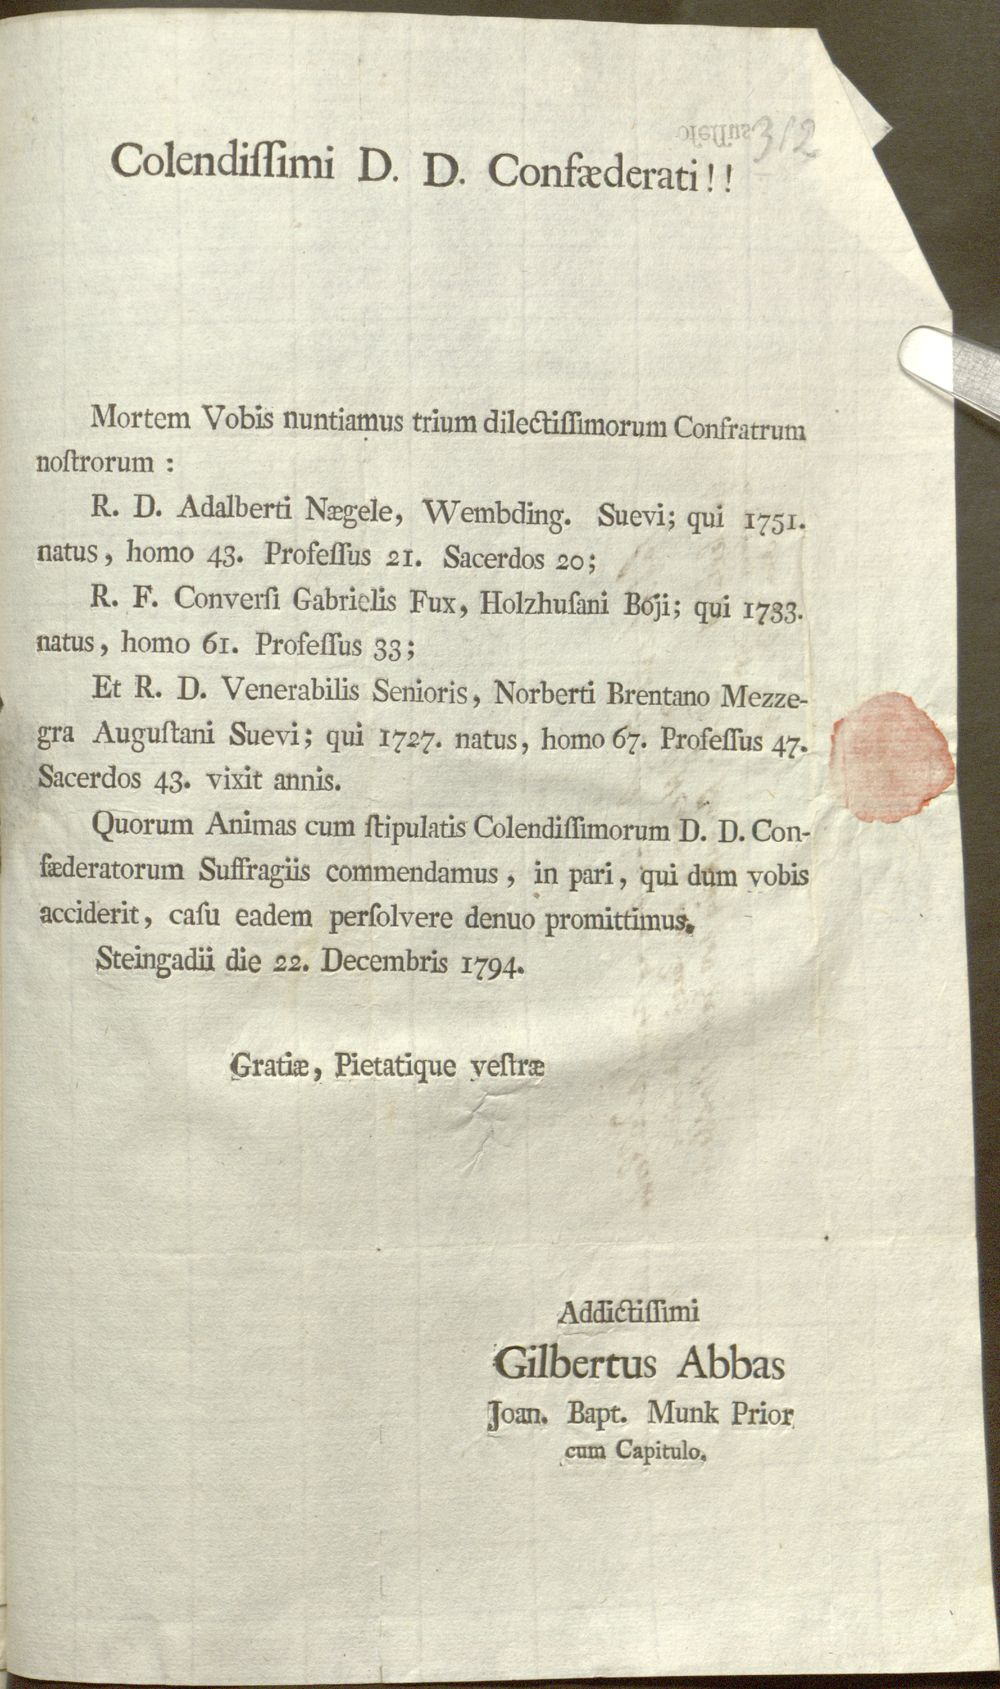 312
Colendiſſimi D. D. Confæderati!!
Mortem Vobis nuntiamus trium dilectiſſimorum Confratrum
noſtrorum :
R. D. Adalberti Nægele, Wembding. Suevi; qui 1751.
natus, homo 43. Profeſſus 21. Sacerdos 20;
R. F. Converſi Gabrielis Fux, Holzhuſani Boji; qui 1733.
natus, homo 61. Profeſſus 33;
Et R. D. Venerabilis Senioris, Norberti Brentano Mezze-
gra Auguſtani Suevi; qui 1727. natus, homo 67. Profeſſus 47.
Sacerdos 43. vixit annis.
Quorum Animas cum ſtipulatis Colendiſſimorum D. D. Con-
fæderatorum Suffragiis commendamus, in pari, qui dum vobis
acciderit, caſu eadem perſolvere denuo promittimus.
Steingadii die 22. Decembris 1794.
Gratiæ, Pietatique veſtræ
Addictiſſimi
Gilbertus Abbas
Joan. Bapt. Munk Prior
cum Capitulo.